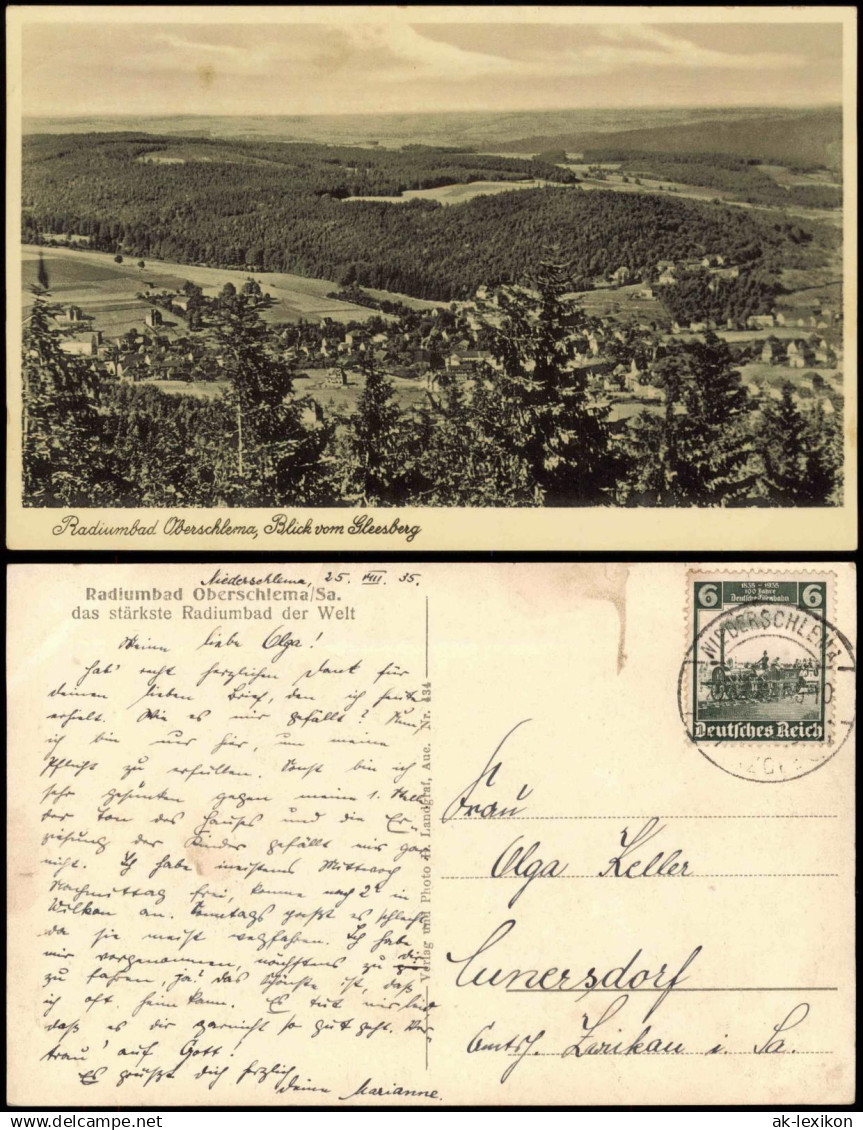 Radiumbad Oberschlema, Blick vom Gleesberg
Niederschlema, 25. VIII. 35.
Radiumbad Oberschlema/Sa.
das stärkste Radiumbad der Welt
Meine liebe Olga!
Hab' recht herzlichen Dank für
deinen lieben Brief, den ich heute
erhielt. Wie es mir gefällt?
ich bin nur hier, um meine
Pflicht zu erfüllen. Sonst bin ich
sehr gesunken gegen meine 1. Stelle
der Ton des Hauses und die Er-
ziehung der Kinder gefällt mir gar
nicht. Ich habe meistens Mittwoch
Nachmittag frei, komme nach 2 in
Wilkau an. Sonntags paßt es schlecht
da sie meist wegfahren. Ich habe
mir vorgenommen, nächstens zu dir
zu fahren, ja! das Schönste ist, daß
ich oft heim kann. Es tut mir leid
daß es dir garnicht so gut geht. Ver-
trau' auf Gott!
Es grüßt dich herzlich
deine Marianne.
Verlag und Photo Landgraf, Aue. Nr. 434
6 1835-1935 6
100 Jahre
Deutsche Eisenbahn
Deutsches Reich
NIEDERSCHLEMA
Frau
Olga Keller
Cunersdorf
Amtsh. Zwickau i. Sa.
ak-lexikon